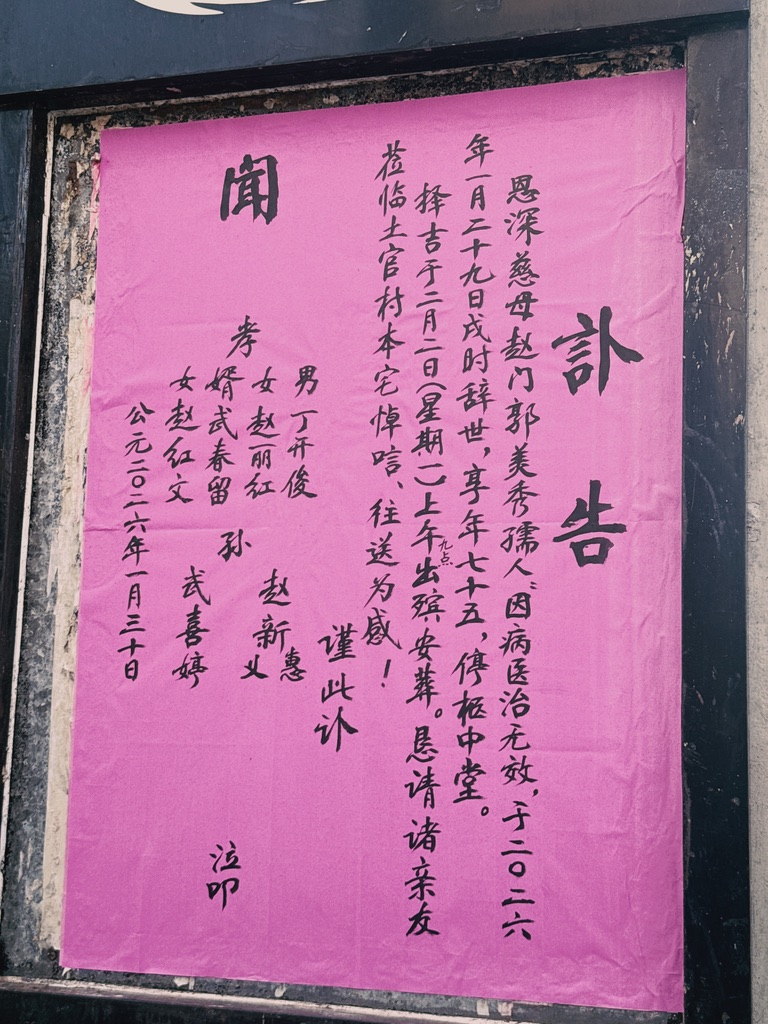 訃告
恩深慈母赵门郭美秀孺人，因病医治无效，于二〇二六
年一月二十九日戌时辞世，享年七十五，停柩中堂。
择吉于二月二日（星期一）上午九点出殡安葬。恳请诸亲友
莅临土官村本宅悼唁、往送为感！
谨此讣
聞
孝
男丁开俊
女赵丽红
婿武春留
女赵红文
孙
赵新惠
义
武喜婷
泣叩
公元二〇二六年一月三十日